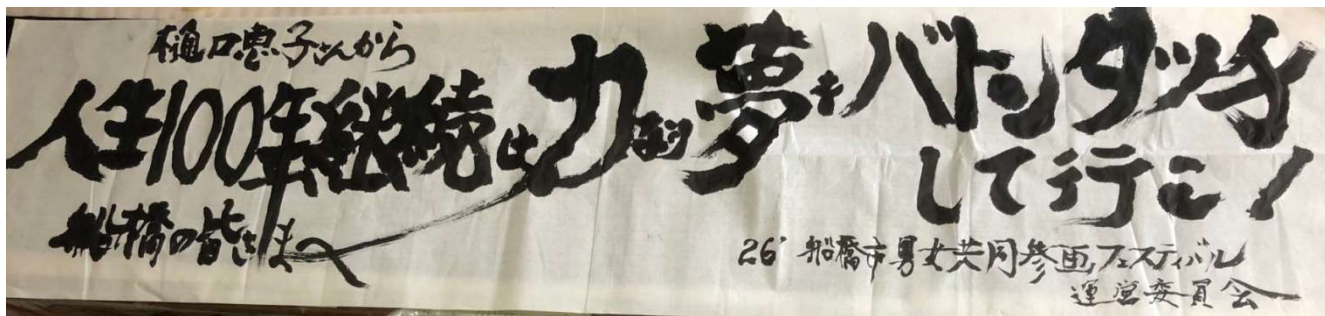 樋口恵子さんから
人生100年継続は力なり夢をバトンタッチ
して行こ！
船橋の皆さまへ
26' 船橋市男女共同参画フェスティバル
運営委員会